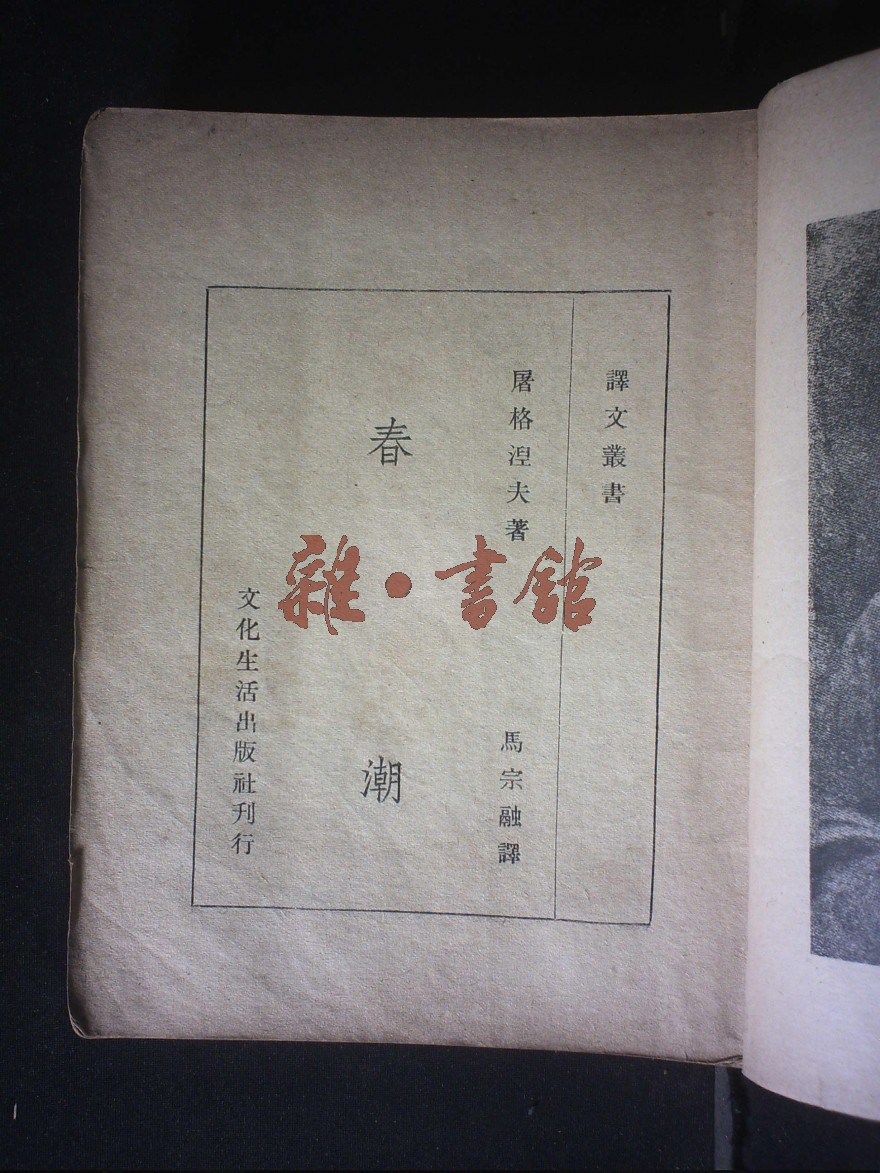 譯文叢書
屠格湼夫著
馬宗融譯
春潮
文化生活出版社刊行
雜·書館